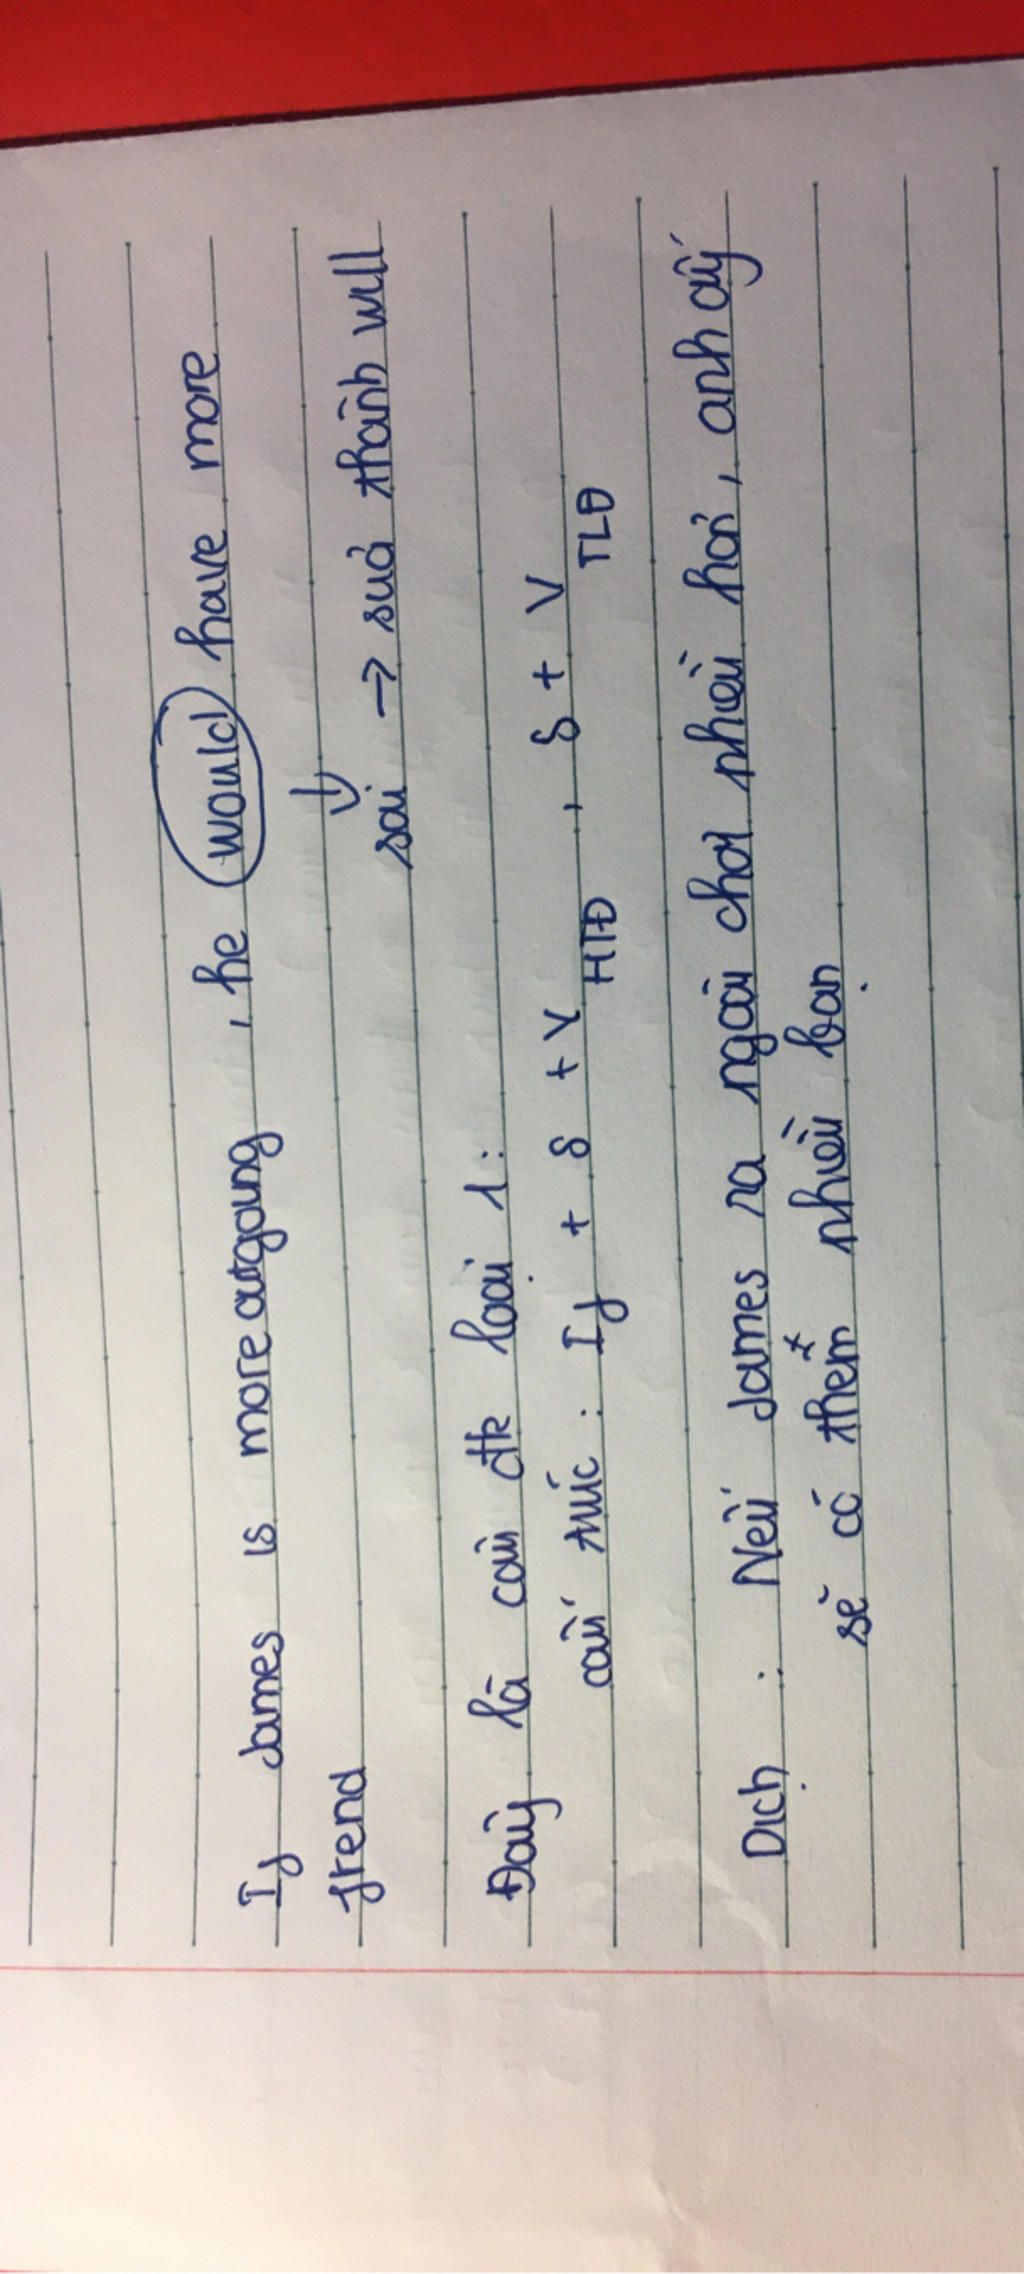 If James is more outgoing, he would have more
friend
sai → sửa thành will
Đây là câu đk loại 1:
cấu trúc : If + S + V HTĐ , S + V TLĐ
Dịch : Nếu James ra ngoài chơi nhiều hơn, anh ấy
sẽ có thêm nhiều bạn